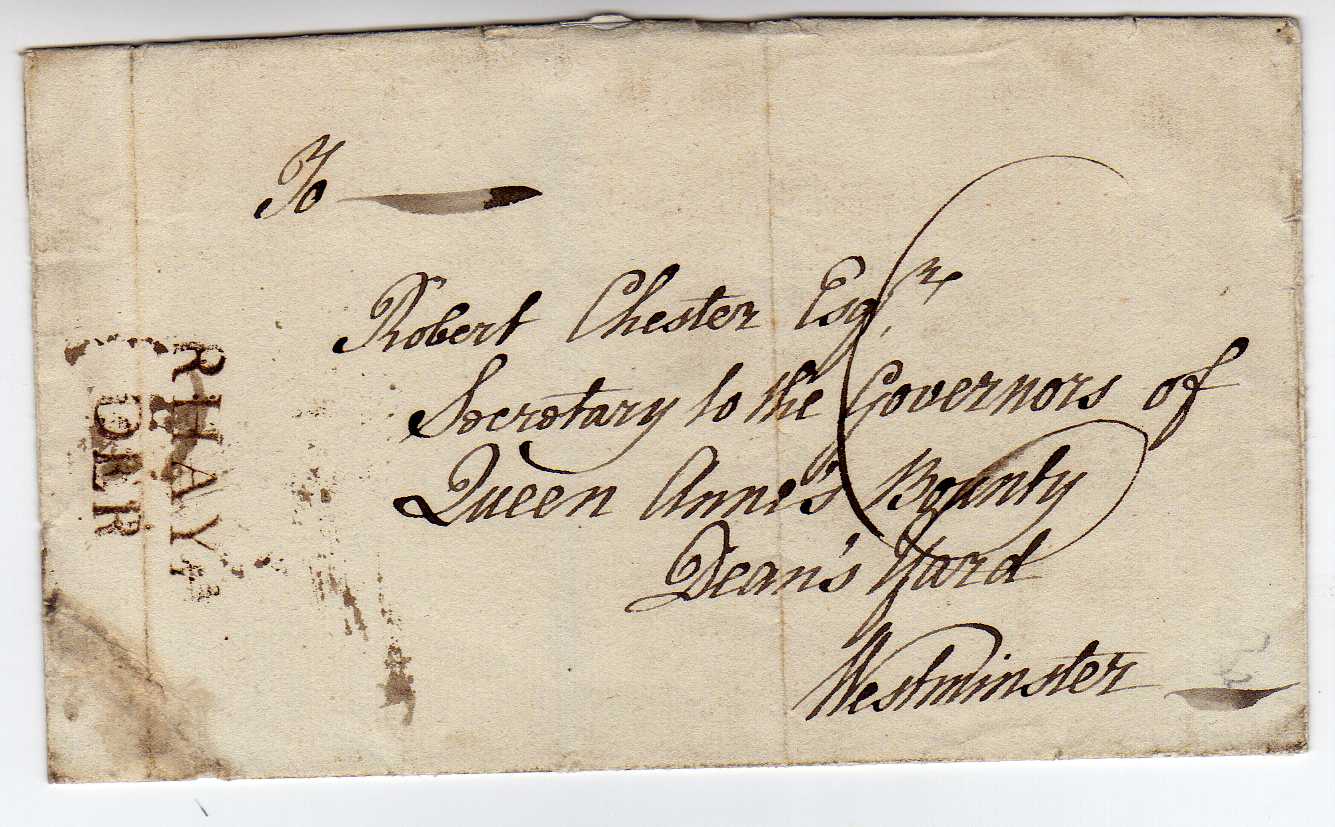 To
Robert Chester Esqr
Secretary to the Governors of
Queen Anne's Bounty
Dean's Yard
Westminster
RHAYA
DER